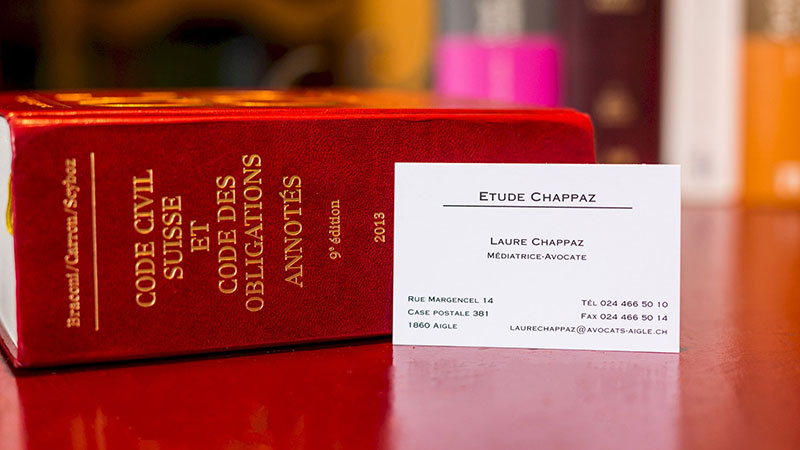 Braconi/Carron/Scyboz
CODE CIVIL
SUISSE
ET
CODE DES
OBLIGATIONS
ANNOTÉS
9e édition
2013
ETUDE CHAPPAZ
LAURE CHAPPAZ
MÉDIATRICE-AVOCATE
RUE MARGENCEL 14
CASE POSTALE 381
1860 AIGLE
TÉL 024 466 50 10
FAX 024 466 50 14
LAURECHAPPAZ@AVOCATS-AIGLE.CH